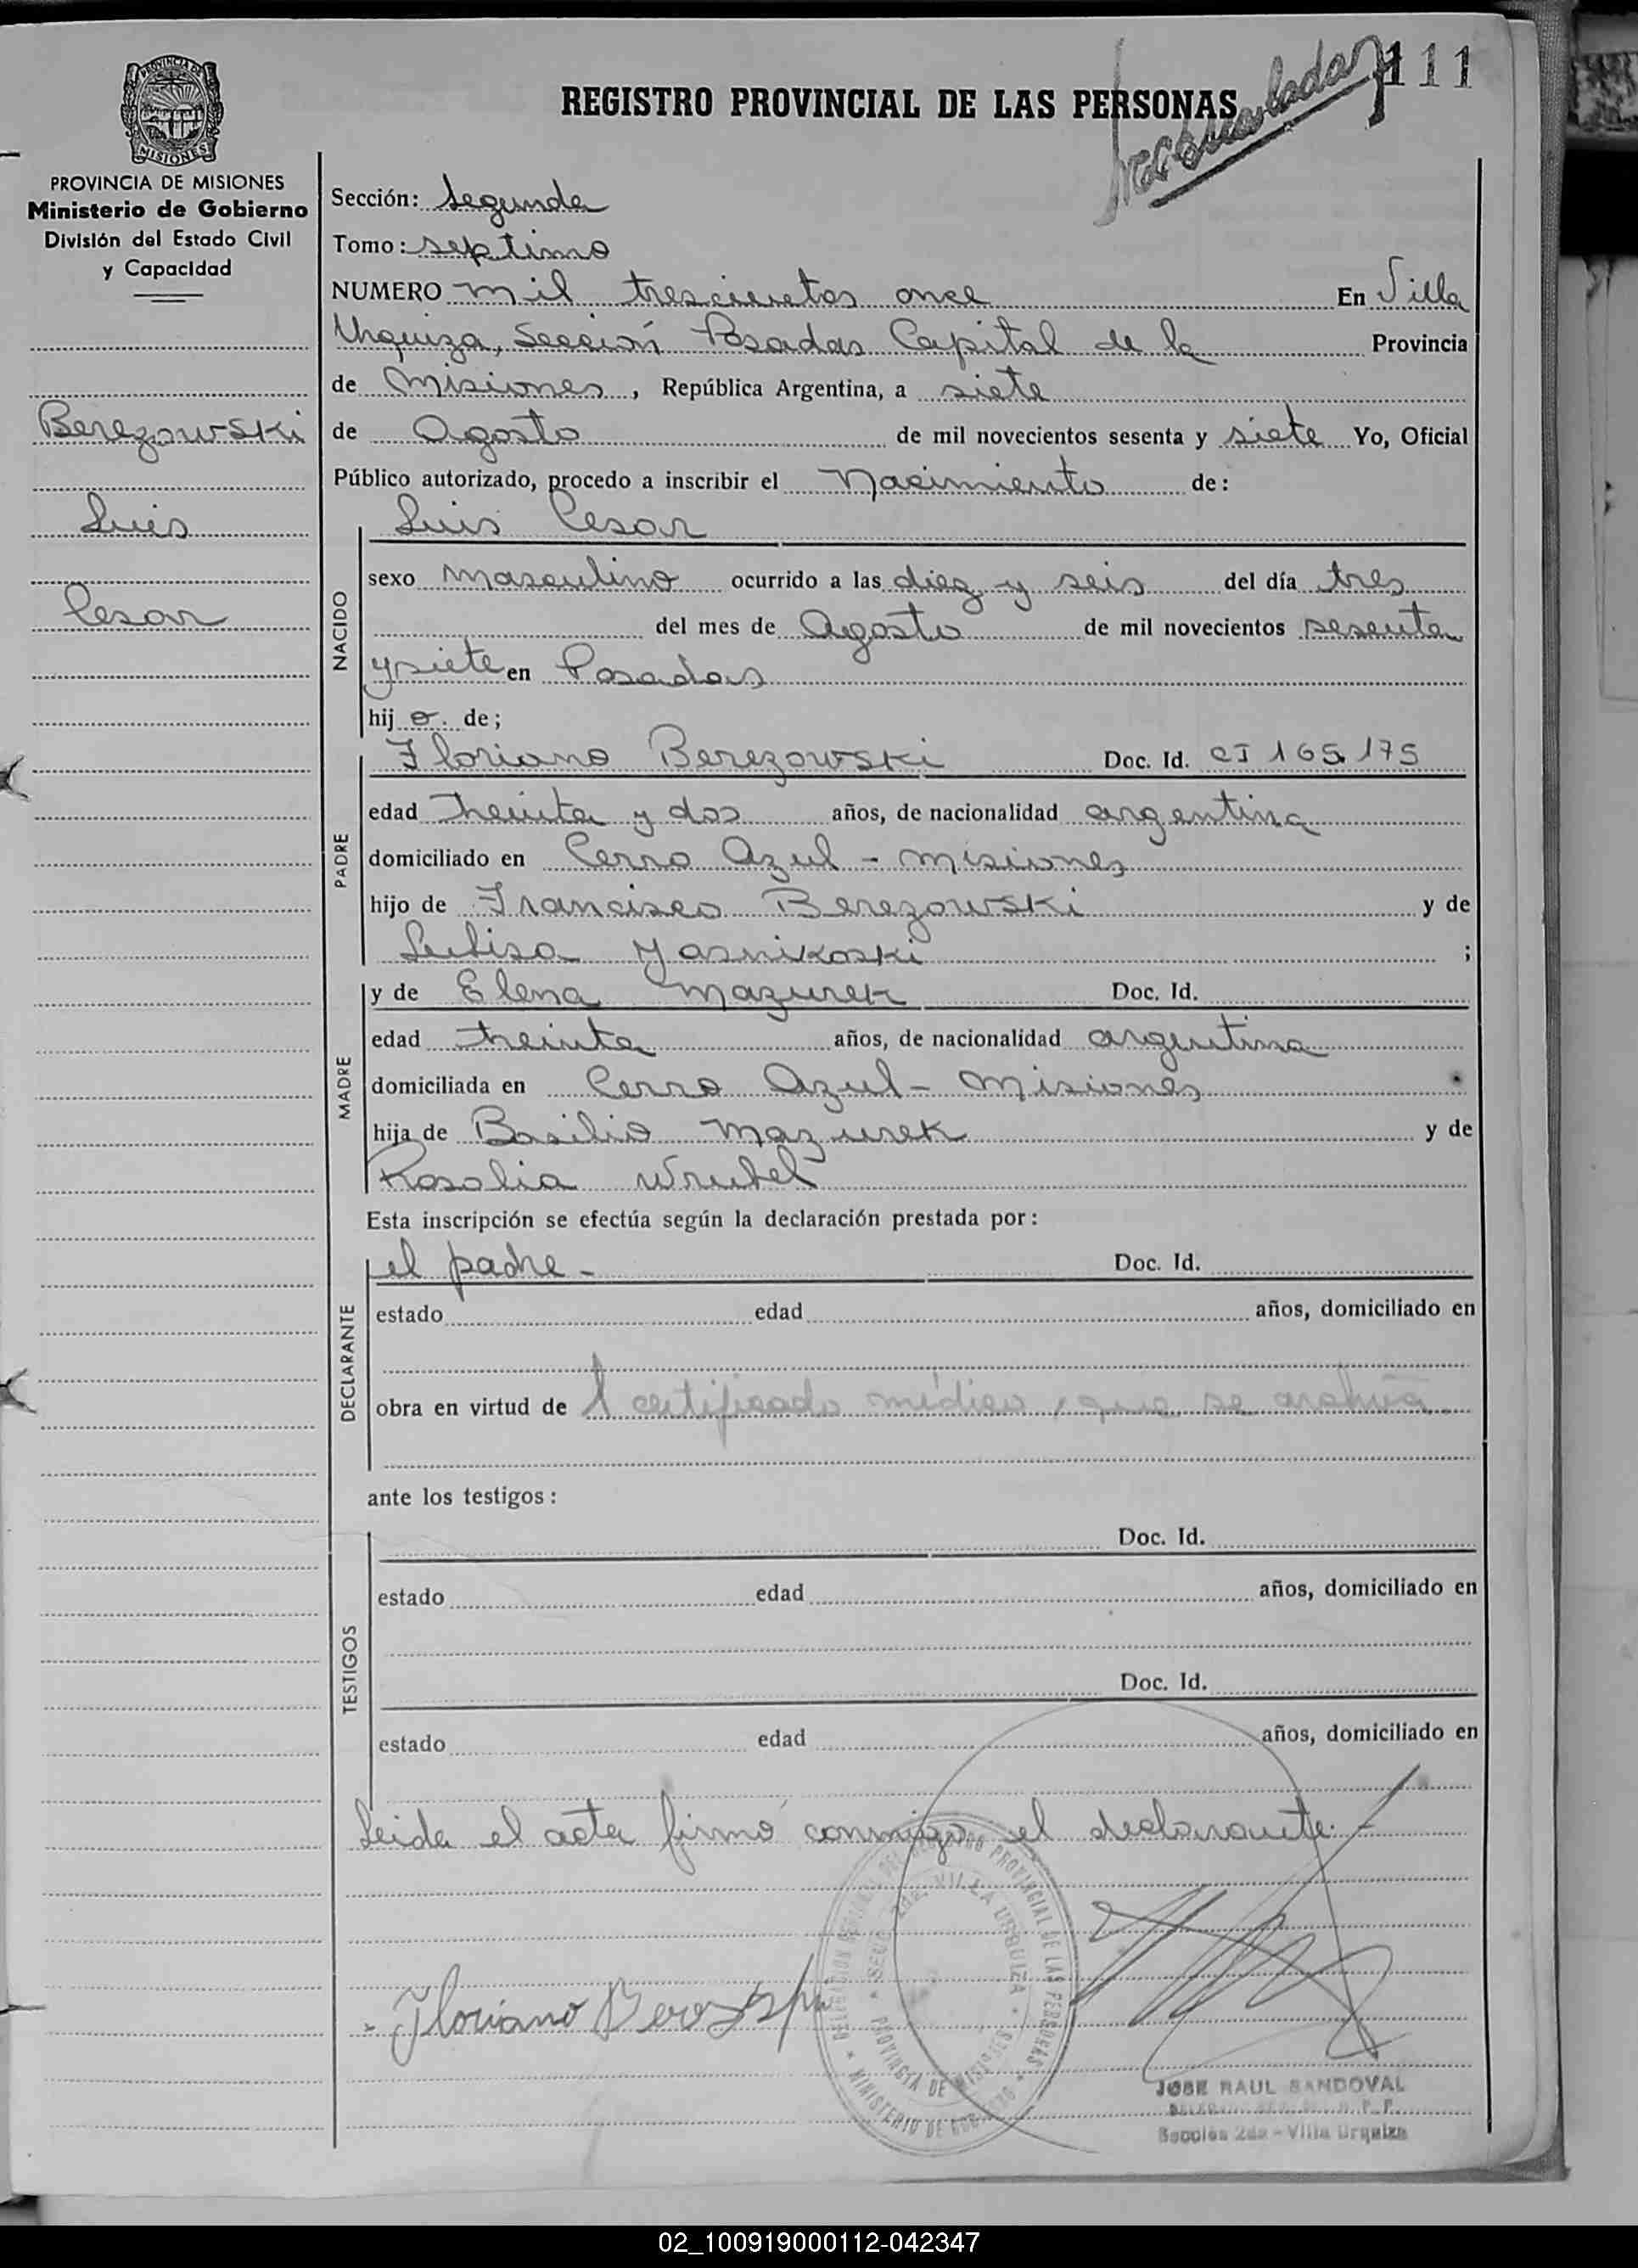 111
REGISTRO PROVINCIAL DE LAS PERSONAS
PROVINCIA DE
MISIONES
PROVINCIA DE MISIONES
Ministerio de Gobierno
División del Estado Civil
y Capacidad
Berezowski
Luis
Cesar
Sección: Segunda
Tomo: septimo
NUMERO mil trescientos once En Villa
Urquiza, Sección Posadas Capital de la Provincia
de Misiones, República Argentina, a siete
de Agosto de mil novecientos sesenta y siete Yo, Oficial
Público autorizado, procedo a inscribir el Nacimiento de:
Luis Cesar
NACIDO
sexo masculino ocurrido a las diez y seis del día tres
del mes de Agosto de mil novecientos sesenta
y siete en Posadas
hij o. de;
PADRE
Floriano Berezowski Doc. Id. CI 165.175
edad Treinta y dos años, de nacionalidad argentina
domiciliado en Cerro Azul - Misiones
hijo de Francisco Berezowski y de
Yasnikoski ;
MADRE
y de Elena Mazurek Doc. Id.
edad treinta años, de nacionalidad argentina
domiciliada en Cerro Azul - Misiones
hija de Basilio Mazurek y de
Rosalia Wrubel
Esta inscripción se efectúa según la declaración prestada por:
DECLARANTE
el padre - Doc. Id.
estado edad años, domiciliado en
obra en virtud de 1 certificado médico, que se archiva.
ante los testigos:
TESTIGOS
Doc. Id.
estado edad años, domiciliado en
Doc. Id.
estado edad años, domiciliado en
Leida el acta firmó conmigo el declarante. -
PROVINCIAL DE LAS PERSONAS
VILLA URQUIZA
PROVINCIA DE MISIONES
MINISTERIO DE GOBIERNO
Floriano
JOSE RAUL SANDOVAL
Sección 2da - Villa Urquiza
02_100919000112-042347